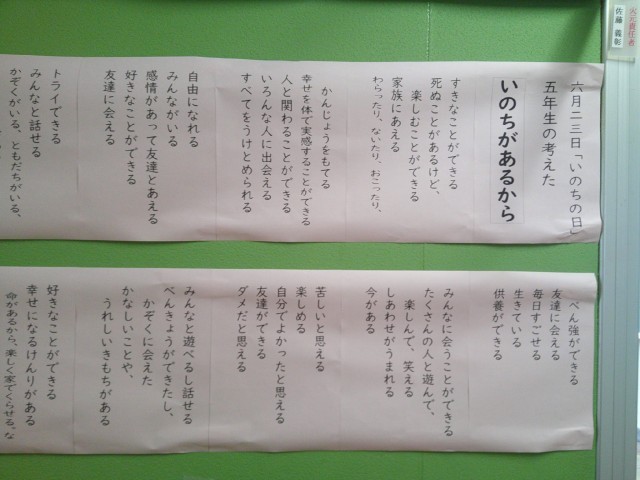 火元責任者
佐藤 義彰
六月二三日「いのちの日」
五年生の考えた
いのちがあるから
すきなことができる
死ぬことがあるけど、
楽しむことができる
家族にあえる
わらったり、ないたり、おこったり、
かんじょうをもてる
幸せを体で実感することができる
人と関わることができる
いろんな人に出会える
すべてをうけとめられる
自由になれる
みんながいる
感情があって友達とあえる
好きなことができる
友達に会える
トライできる
みんなと話せる
かぞくがいる、ともだちがいる、
べん強ができる
友達に会える
毎日すごせる
生きている
供養ができる
みんなに会うことができる
たくさんの人と遊んで、
楽しんで、笑える
しあわせがうまれる
今がある
苦しいと思える
楽しめる
自分でよかったと思える
友達ができる
ダメだと思える
みんなと遊べるし話せる
べんきょうができたし、
かぞくに会えた
かなしいことや、
うれしいきもちがある
好きなことができる
幸せになるけんりがある
命があるから、楽しく家でくらせる、な